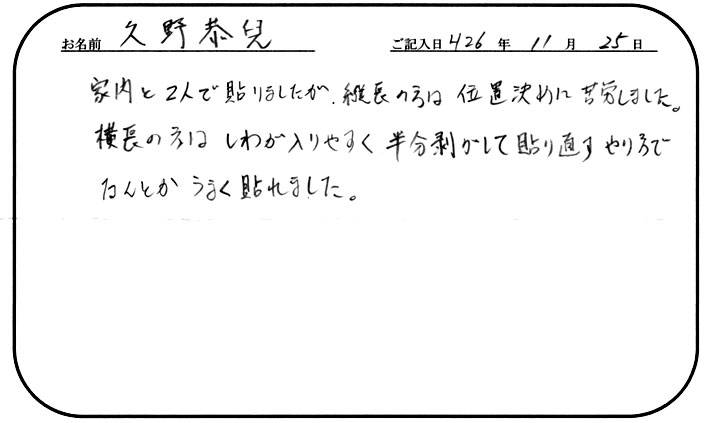 お名前 久野恭兒 ご記入日 H26 年 11 月 25 日
家内と2人で貼りましたが、縦長の方は位置決めに苦労しました。
横長の方はしわが入りやすく半分剥がして貼り直すやり方で
なんとかうまく貼れました。